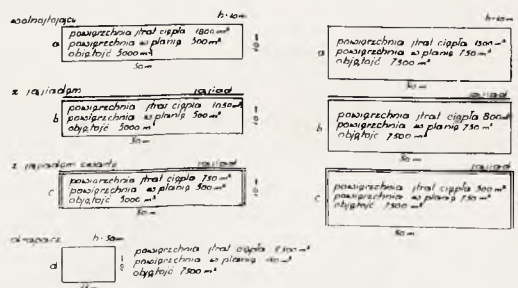 wolnostojący h·10m
a powierzchnia strat ciepła 1800 m²
powierzchnia w planie 500 m²
objętość 5000 m³
50m
z sąsiadem sąsiad
b powierzchnia strat ciepła 1050 m²
powierzchnia w planie 500 m²
objętość 5000 m³
50m
z sąsiadem sąsiad
c powierzchnia strat ciepła 750 m²
powierzchnia w planie 500 m²
objętość 5000 m³
50m
h·50m
d powierzchnia strat ciepła
powierzchnia w planie
objętość 7500 m³
h·10m
a powierzchnia strat ciepła 1300 m²
powierzchnia w planie 750 m²
objętość 7500 m³
50m
sąsiad
b powierzchnia strat ciepła 800 m²
powierzchnia w planie 750 m²
objętość 7500 m³
50m
sąsiad
c powierzchnia strat ciepła 500 m²
powierzchnia w planie 750 m²
objętość 7500 m³
50m